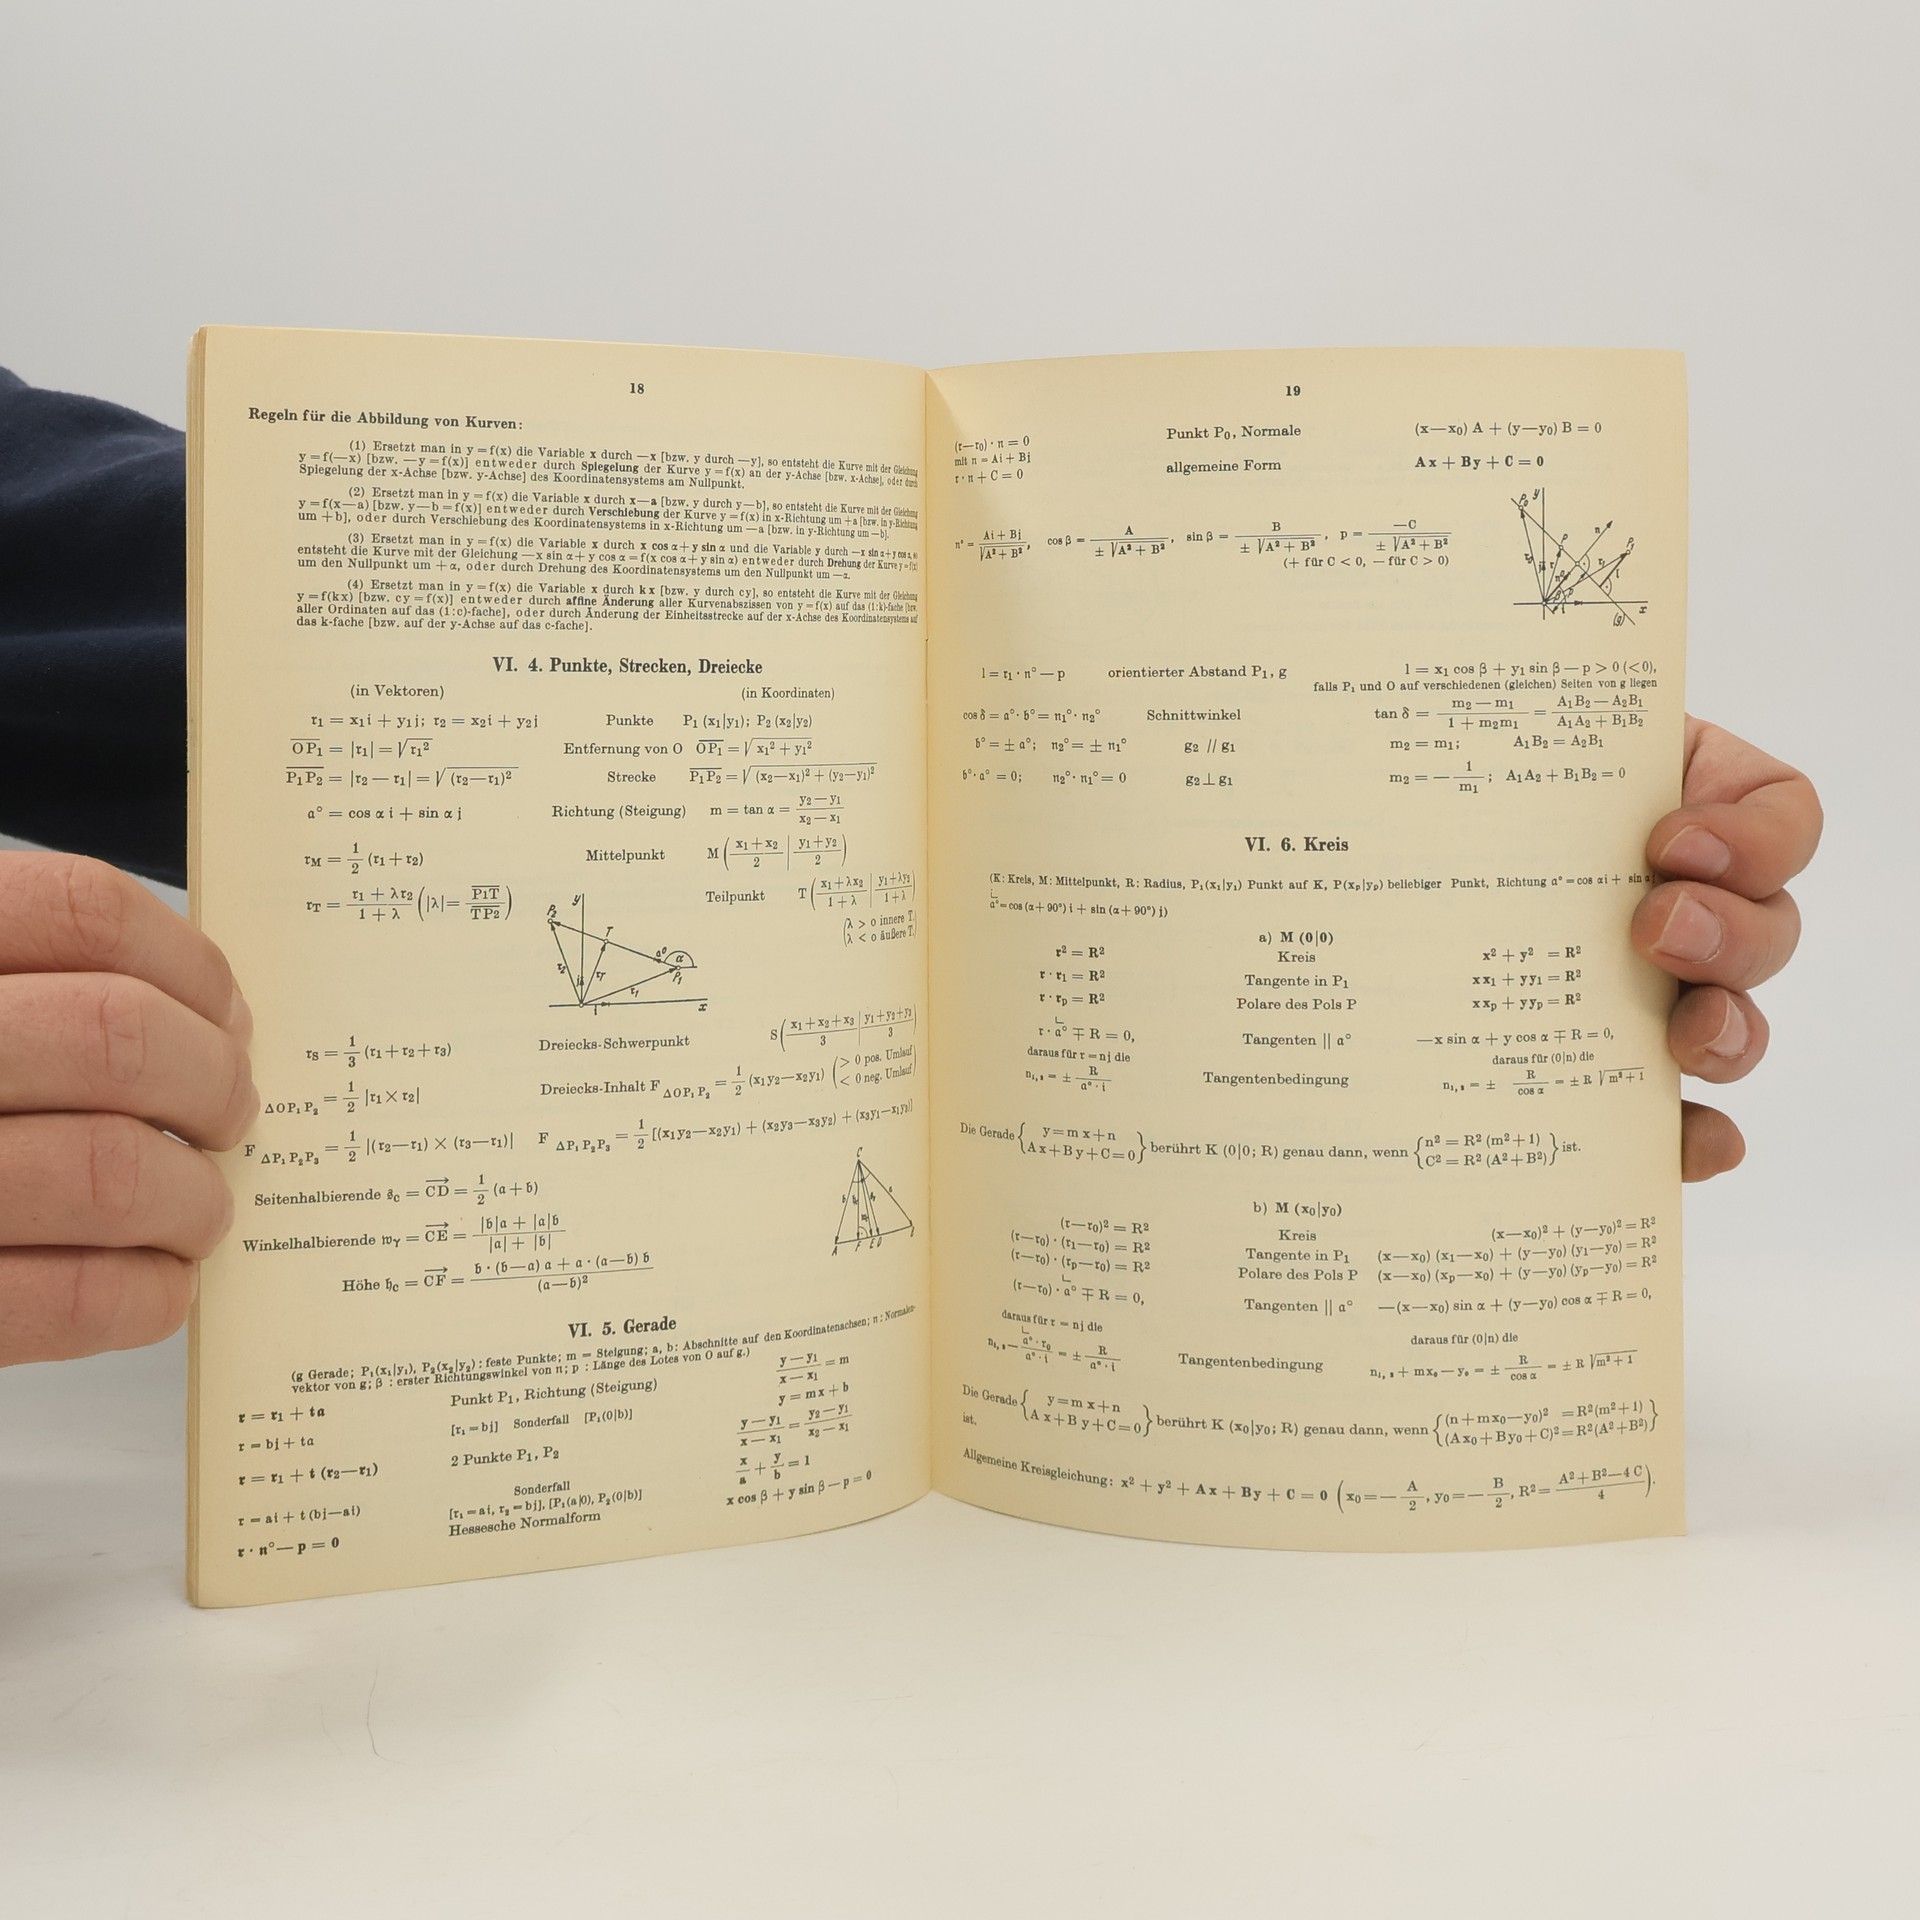 18
Regeln für die Abbildung von Kurven:
(1) Ersetzt man in y = f(x) die Variable x durch —x [bzw. y durch —y], so entsteht die Kurve mit der Gleichung
y = f(—x) [bzw. —y = f(x)] entweder durch Spiegelung der Kurve y = f(x) an der y-Achse [bzw. x-Achse], oder durch
Spiegelung der x-Achse [bzw. y-Achse] des Koordinatensystems am Nullpunkt.
(2) Ersetzt man in y = f(x) die Variable x durch x—a [bzw. y durch y—b], so entsteht die Kurve mit der Gleichung
y = f(x—a) [bzw. y—b = f(x)] entweder durch Verschiebung der Kurve y = f(x) in x-Richtung um +a [bzw. in y-Richtung
um +b], oder durch Verschiebung des Koordinatensystems in x-Richtung um —a [bzw. in y-Richtung um —b].
(3) Ersetzt man in y = f(x) die Variable x durch x cos α + y sin α und die Variable y durch —x sin α + y cos α, so
entsteht die Kurve mit der Gleichung —x sin α + y cos α = f(x cos α + y sin α) entweder durch Drehung der Kurve y = f(x)
um den Nullpunkt um + α, oder durch Drehung des Koordinatensystems um den Nullpunkt um —α.
(4) Ersetzt man in y = f(x) die Variable x durch kx [bzw. y durch cy], so entsteht die Kurve mit der Gleichung
y = f(kx) [bzw. cy = f(x)] entweder durch affine Änderung aller Kurvenabszissen von y = f(x) auf das (1:k)-fache [bzw.
aller Ordinaten auf das (1:c)-fache], oder durch Änderung der Einheitsstrecke auf der x-Achse des Koordinatensystems auf
das k-fache [bzw. auf der y-Achse auf das c-fache].
VI. 4. Punkte, Strecken, Dreiecke
(in Vektoren) (in Koordinaten)
𝔯₁ = x₁𝔦 + y₁𝔧; 𝔯₂ = x₂𝔦 + y₂𝔧 Punkte P₁ (x₁|y₁); P₂ (x₂|y₂)
OP₁ = |𝔯₁| = √𝔯₁² Entfernung von O OP₁ = √x₁² + y₁²
P₁P₂ = |𝔯₂ — 𝔯₁| = √(𝔯₂—𝔯₁)² Strecke P₁P₂ = √(x₂—x₁)² + (y₂—y₁)²
𝔞° = cos α 𝔦 + sin α 𝔧 Richtung (Steigung) m = tan α = (y₂ — y₁)/(x₂ — x₁)
𝔯M = 1/2 (𝔯₁ + 𝔯₂) Mittelpunkt M ((x₁ + x₂)/2 | (y₁ + y₂)/2)
𝔯T = (𝔯₁ + λ𝔯₂)/(1 + λ) (|λ| = P₁T/TP₂) Teilpunkt T ((x₁ + λx₂)/(1 + λ) | (y₁ + λy₂)/(1 + λ))
(λ > 0 innere T.
λ < 0 äußere T.)
P₂ y T 𝔞° α P₁ 𝔯₂ 𝔯T 𝔯₁ 𝔧 𝔦 x
𝔯S = 1/3 (𝔯₁ + 𝔯₂ + 𝔯₃) Dreiecks-Schwerpunkt S ((x₁ + x₂ + x₃)/3 | (y₁ + y₂ + y₃)/3)
ΔOP₁P₂ = 1/2 |𝔯₁ × 𝔯₂| Dreiecks-Inhalt F ΔOP₁P₂ = 1/2 (x₁y₂—x₂y₁) (> 0 pos. Umlauf
< 0 neg. Umlauf)
F ΔP₁P₂P₃ = 1/2 |(𝔯₂—𝔯₁) × (𝔯₃—𝔯₁)| F ΔP₁P₂P₃ = 1/2 [(x₁y₂—x₂y₁) + (x₂y₃—x₃y₂) + (x₃y₁—x₁y₃)]
Seitenhalbierende 𝔰c = CD = 1/2 (𝔞 + 𝔟)
Winkelhalbierende 𝔴γ = CE = (|𝔟|𝔞 + |𝔞|𝔟)/(|𝔞| + |𝔟|)
Höhe 𝔥c = CF = (𝔟 · (𝔟—𝔞) 𝔞 + 𝔞 · (𝔞—𝔟) 𝔟)/(𝔞—𝔟)²
C A F E D
VI. 5. Gerade
(g Gerade; P₁(x₁|y₁), P₂(x₂|y₂): feste Punkte; m = Steigung; a, b: Abschnitte auf den Koordinatenachsen; 𝔫: Normalen-
vektor von g; β : erster Richtungswinkel von 𝔫; p : Länge des Lotes von O auf g.)
𝔯 = 𝔯₁ + t𝔞 Punkt P₁, Richtung (Steigung) (y — y₁)/(x — x₁) = m
𝔯 = b𝔧 + t𝔞 [𝔯₁ = b𝔧] Sonderfall [P₁(0|b)] y = mx + b
𝔯 = 𝔯₁ + t (𝔯₂—𝔯₁) 2 Punkte P₁, P₂ (y — y₁)/(x — x₁) = (y₂ — y₁)/(x₂ — x₁)
Sonderfall
𝔯 = a𝔦 + t (b𝔧—a𝔦) [𝔯₁ = a𝔦, 𝔯₂ = b𝔧], [P₁(a|0), P₂(0|b)] x/a + y/b = 1
𝔯 · 𝔫° — p = 0 Hessesche Normalform x cos β + y sin β — p = 0
19
(𝔯—𝔯₀) · 𝔫 = 0 Punkt P₀, Normale (x—x₀) A + (y—y₀) B = 0
mit 𝔫 = A𝔦 + B𝔧
𝔯 · 𝔫 + C = 0 allgemeine Form Ax + By + C = 0
𝔫° = (A𝔦 + B𝔧)/√A² + B², cos β = A/(± √A² + B²), sin β = B/(± √A² + B²), p = —C/(± √A² + B²)
(+ für C < 0, — für C > 0)
P₀ y 𝔫 P₁ x (g)
l = 𝔯₁ · 𝔫° — p orientierter Abstand P₁, g l = x₁ cos β + y₁ sin β — p > 0 (< 0),
falls P₁ und O auf verschiedenen (gleichen) Seiten von g liegen
cos δ = 𝔞° · 𝔟° = 𝔫₁° · 𝔫₂° Schnittwinkel tan δ = (m₂ — m₁)/(1 + m₂m₁) = (A₁B₂ — A₂B₁)/(A₁A₂ + B₁B₂)
𝔟° = ± 𝔞°; 𝔫₂° = ± 𝔫₁° g₂ // g₁ m₂ = m₁; A₁B₂ = A₂B₁
𝔟° · 𝔞° = 0; 𝔫₂° · 𝔫₁° = 0 g₂ ⊥ g₁ m₂ = — 1/m₁; A₁A₂ + B₁B₂ = 0
VI. 6. Kreis
(K: Kreis, M: Mittelpunkt, R: Radius, P₁(x₁|y₁) Punkt auf K, P(xₚ|yₚ) beliebiger Punkt, Richtung 𝔞° = cos α𝔦 + sin α𝔧
𝔞° = cos (α + 90°) 𝔦 + sin (α + 90°) 𝔧)
a) M (0|0)
𝔯² = R² Kreis x² + y² = R²
𝔯 · 𝔯₁ = R² Tangente in P₁ xx₁ + yy₁ = R²
𝔯 · 𝔯ₚ = R² Polare des Pols P xxₚ + yyₚ = R²
𝔯 · 𝔞° ∓ R = 0, Tangenten || 𝔞° —x sin α + y cos α ∓ R = 0,
daraus für 𝔯 = n𝔧 die daraus für (0|n) die
n₁,₂ = ± R/(𝔞° · 𝔦) Tangentenbedingung n₁,₂ = ± R/cos α = ± R √m² + 1
Die Gerade {y = m x + n
Ax + By + C = 0} berührt K (0|0; R) genau dann, wenn {n² = R² (m² + 1)
C² = R² (A² + B²)} ist.
b) M (x₀|y₀)
(𝔯—𝔯₀)² = R² Kreis (x—x₀)² + (y—y₀)² = R²
(𝔯—𝔯₀) · (𝔯₁—𝔯₀) = R² Tangente in P₁ (x—x₀) (x₁—x₀) + (y—y₀) (y₁—y₀) = R²
(𝔯—𝔯₀) · (𝔯ₚ—𝔯₀) = R² Polare des Pols P (x—x₀) (xₚ—x₀) + (y—y₀) (yₚ—y₀) = R²
(𝔯—𝔯₀) · 𝔞° ∓ R = 0, Tangenten || 𝔞° —(x—x₀) sin α + (y—y₀) cos α ∓ R = 0,
daraus für 𝔯 = n𝔧 die daraus für (0|n) die
n₁,₂ — (𝔞° · 𝔯₀)/(𝔞° · 𝔦) = ± R/(𝔞° · 𝔦) Tangentenbedingung n₁,₂ + mx₀ — y₀ = ± R/cos α = ± R √m² + 1
Die Gerade {y = m x + n
Ax + By + C = 0} berührt K (x₀|y₀; R) genau dann, wenn {(n + mx₀—y₀)² = R²(m² + 1)
(Ax₀ + By₀ + C)² = R²(A² + B²)}
ist.
Allgemeine Kreisgleichung: x² + y² + Ax + By + C = 0 (x₀ = — A/2, y₀ = — B/2, R² = (A² + B² — 4C)/4).